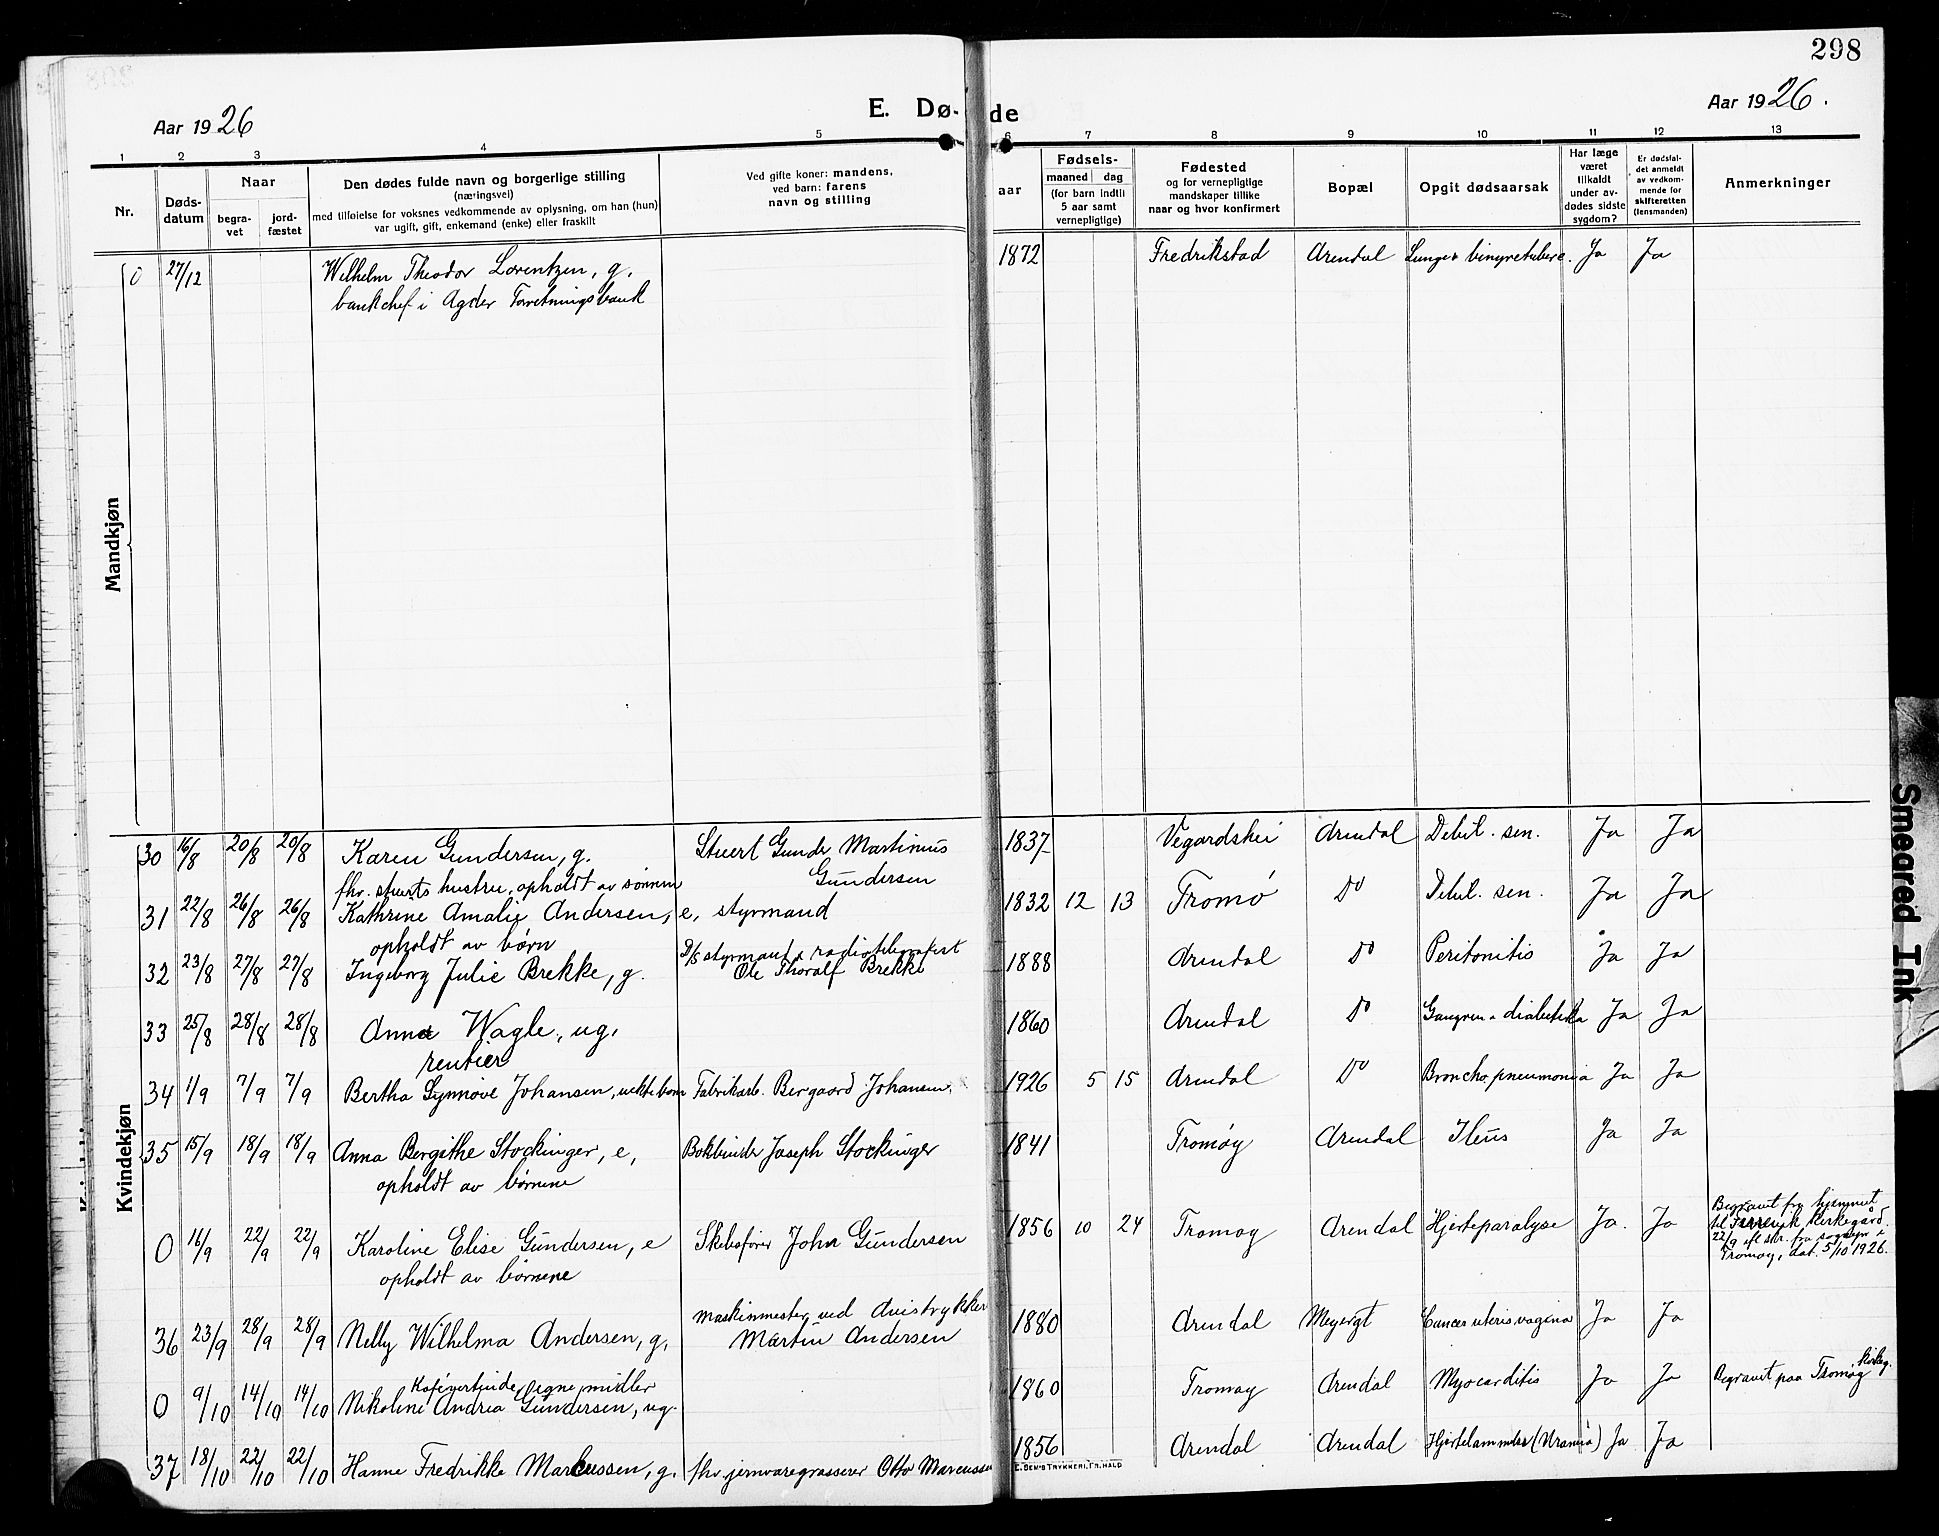 298
Aar 1926
E. Dø-
de
Aar 1926.
1 2 3 4 5 6 7 8 9 10 11 12 13
Nr.
Døds-
datum
Naar
begra-
vet
jord-
fæstet
Den dødes fulde navn og borgerlige stilling
(næringsvei)
med tilføielse for voksnes vedkommende av oplysning, om han (hun)
var ugift, gift, enkemand (enke) eller fraskilt
Ved gifte koner: mandens,
ved barn: farens
navn og stilling
aar
Fødsels-
maaned dag
(for barn indtil
5 aar samt
vernepligtige)
Fødested
og for vernepligtige
mandskaper tillike
naar og hvor konfirmert
Bopæl
Opgit dødsaarsak
Har læge
været
tilkaldt
under av-
dødes sidste
sygdom?
Er dødsfal-
det anmeldt
av vedkom-
mende for
skifteretten
(lensmanden)
Anmerkninger
Mandkjøn
0 27/12 Wilhelm Theodor Lorentzen, g. 1872 Fredrikstad Arendal Lunge & binyretuberc. Ja Ja
bankchef i Agder Forretningsbank
Kvindekjøn
30 16/8 20/8 20/8 Karen Gundersen, g. Stuert Gunde Martinus 1837 Vegardshei Arendal Debil. sen. Ja Ja
Gundersen
fhv. stuerts hustru, opholdt av sønnen
31 22/8 26/8 26/8 Kathrine Amalie Andersen, e, styrmand 1832 12 13 Tromø Do Debil. sen. Ja Ja
opholdt av børn
D/S styrmand & radiotelegrafist
32 23/8 27/8 27/8 Ingeborg Julie Brekke, g. Ole Thoralf Brekke 1888 Arendal Do Peritonitis Ja Ja
33 25/8 28/8 28/8 Anna Wagle, ug. 1860 Arendal Do Gangrena diabetika Ja Ja
rentier
34 1/9 7/9 7/9 Bertha Synnøve Johansen, uekte barn Fabrikarb. Bergaard Johansen. 1926 5 15 Arendal Do Bronchopneumonia Ja Ja
35 15/9 18/9 18/9 Anna Bergithe Stockinger, e, Bokbinder Joseph Stockinger 1841 Tromøy Arendal Ileus Ja Ja
opholdt av børnene
0 16/9 22/9 22/9 Karoline Elise Gundersen, e Skibsfører John Gundersen 1856 10 24 Tromøy Arendal Hjerteparalyse Ja. Ja
opholdt av børnene
Begravet fra hjemmet
til Færvik kirkegård
22/9 eft skr. fra sognepr i
Tromøy, dat. 5/10 1926.
maskinmester ved Avistrykker
36 23/9 28/9 28/9 Nelly Wilhelma Andersen, g, Martin Andersen 1880 Arendal Meyergt Cancer uteris vagina Ja Ja
Kafévertinde, egne midler
0 9/10 14/10 14/10 Nikoline Andrea Gundersen, ug. 1860 Tromøy Arendal Myocarditis Ja Ja Begravet paa Tromøy kirkeg.
37 18/10 22/10 22/10 Hanne Fredrikke Marcussen, g. fhv. jernvaregrosserer Otto Marcussen 1856 Arendal Arendal Hjertelammelse (Uræmia) Ja Ja
E. SEM'S TRYKKERI, FR.HALD
Smeared Ink